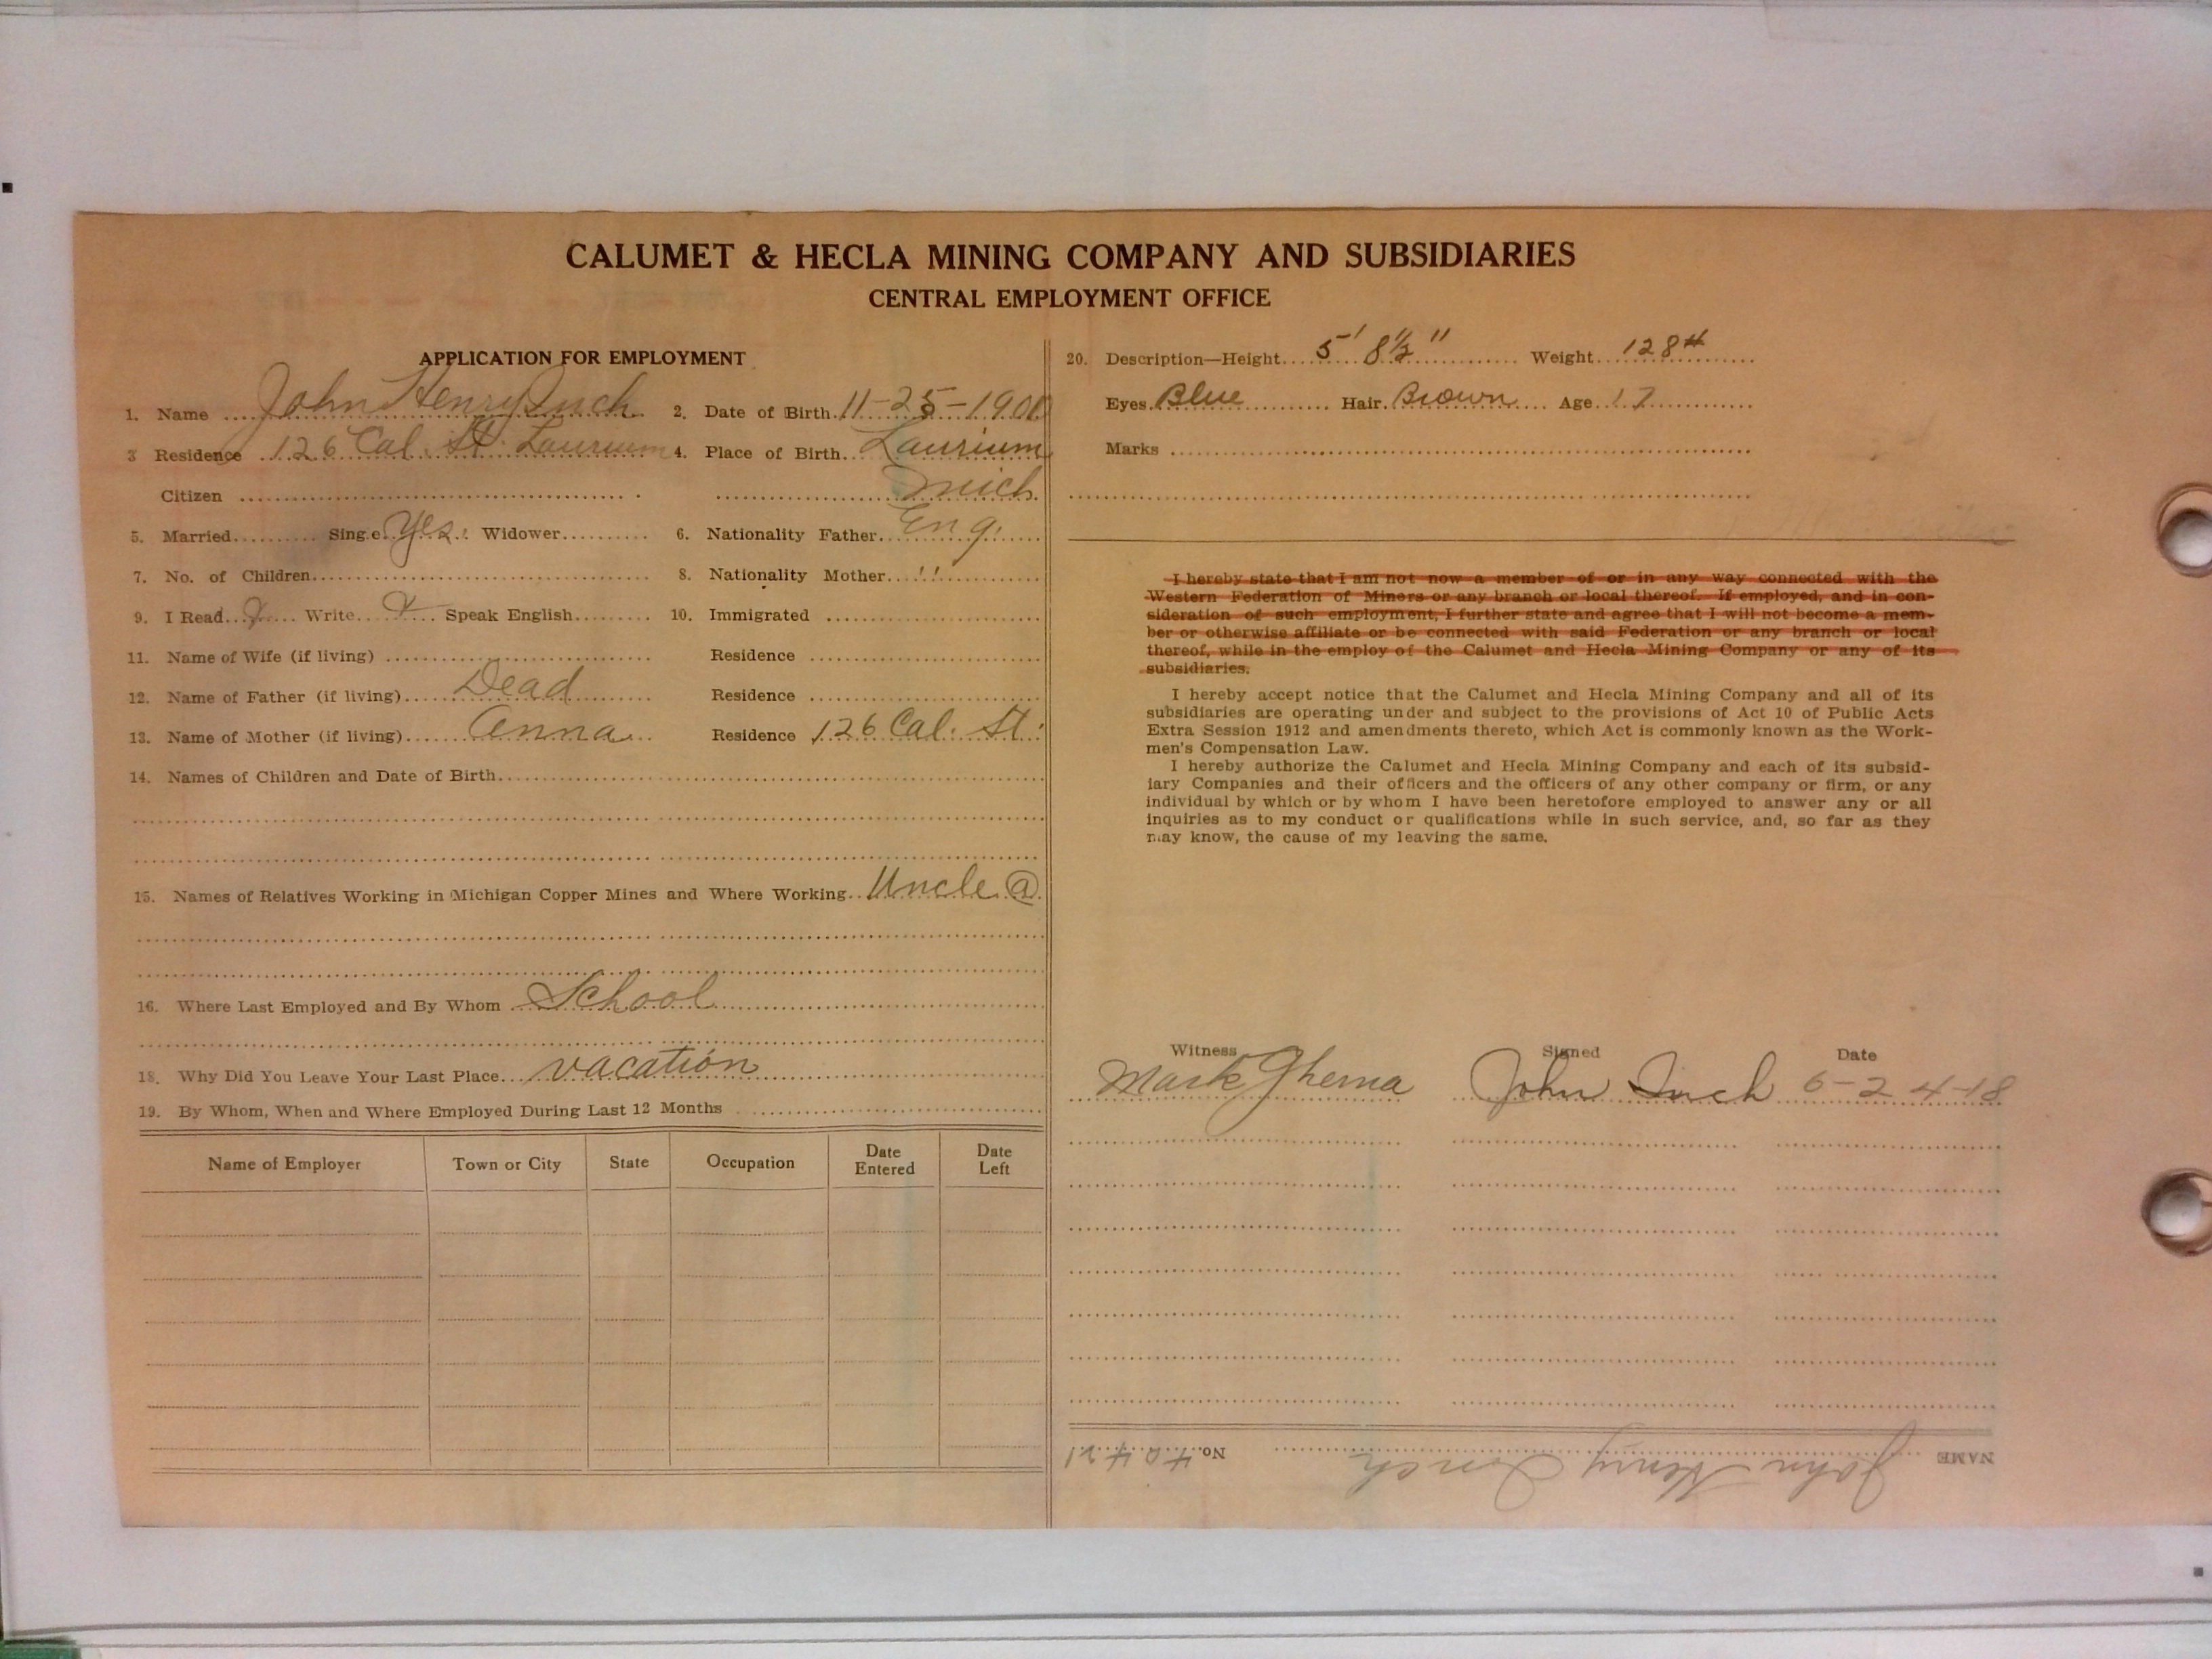 CALUMET & HECLA MINING COMPANY AND SUBSIDIARIES
CENTRAL EMPLOYMENT OFFICE
APPLICATION FOR EMPLOYMENT
1. Name John Henry Inch 2. Date of Birth 11-25-1900
3 Residence 126 Cal. St. Laurium 4. Place of Birth Laurium
Citizen Mich
5. Married Single Yes. Widower 6. Nationality Father Eng.
7. No. of Children 8. Nationality Mother "
9. I Read X Write X Speak English 10. Immigrated
11. Name of Wife (if living) Residence
12. Name of Father (if living) Dead Residence
13. Name of Mother (if living) Anna Residence 126 Cal. St.
14. Names of Children and Date of Birth
15. Names of Relatives Working in Michigan Copper Mines and Where Working Uncle @
16. Where Last Employed and By Whom School
18. Why Did You Leave Your Last Place vacation
19. By Whom, When and Where Employed During Last 12 Months
Name of Employer Town or City State Occupation Date Entered Date Left
20. Description—Height 5' 8½" Weight 128#
Eyes Blue Hair Brown Age 17
Marks
I hereby state that I am not now a member of or in any way connected with the
Western Federation of Miners or any branch or local thereof. If employed, and in con-
sideration of such employment, I further state and agree that I will not become a mem-
ber or otherwise affiliate or be connected with said Federation or any branch or local
thereof, while in the employ of the Calumet and Hecla Mining Company or any of its
subsidiaries.
I hereby accept notice that the Calumet and Hecla Mining Company and all of its
subsidiaries are operating under and subject to the provisions of Act 10 of Public Acts
Extra Session 1912 and amendments thereto, which Act is commonly known as the Work-
men's Compensation Law.
I hereby authorize the Calumet and Hecla Mining Company and each of its subsid-
iary Companies and their officers and the officers of any other company or firm, or any
individual by which or by whom I have been heretofore employed to answer any or all
inquiries as to my conduct or qualifications while in such service, and, so far as they
may know, the cause of my leaving the same.
Witness Signed Date
Mark Ghema John Inch 6-24-18
NAME John Henry Inch No. 40421